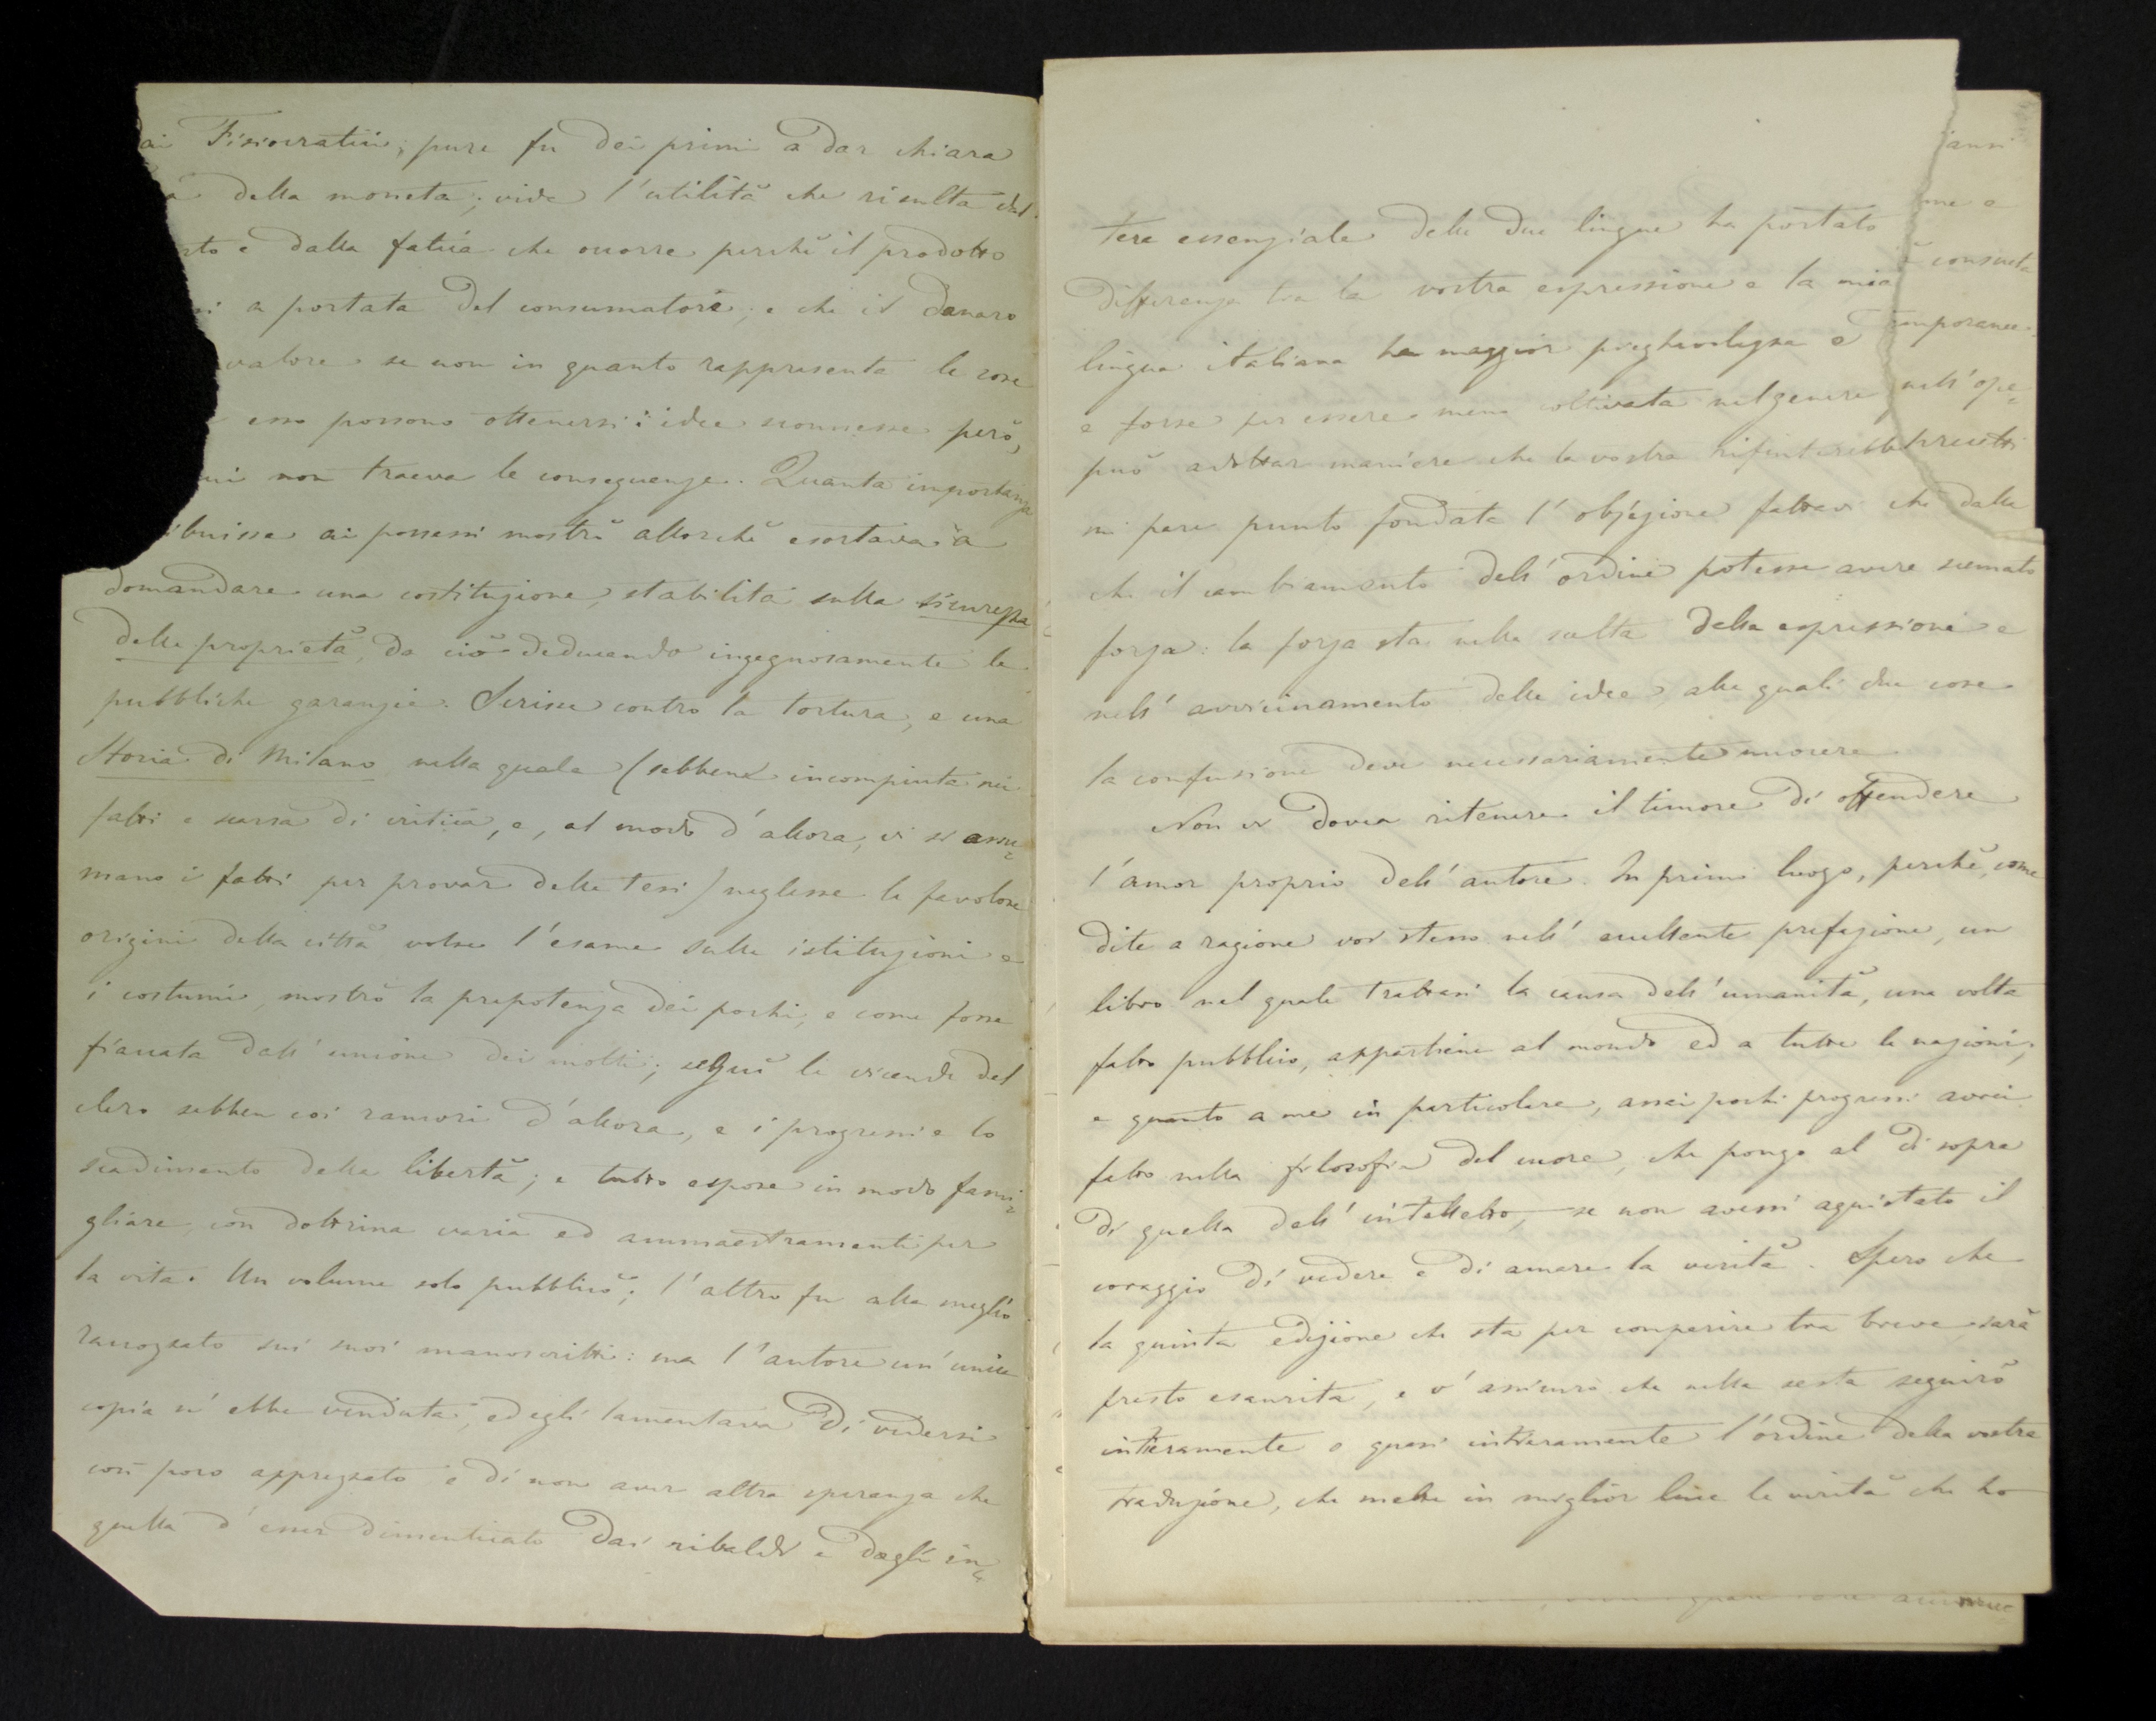 ai Fisiocratici; pure fu dei primi a dar chiara
della moneta; vide l'utilità che risulta dal
sto e dalla fatica che occorre perchè il prodotto
a portata del consumatore; e che il danaro
valore se non in quanto rappresenta le cose
esso possono ottenersi: idee sconnesse però,
ui non traeva le conseguenze. Quanta importanza
ibuisse ai possessi mostrò allorchè esortava a
domandare una costituzione, stabilita sulla sicurezza
della proprietà, da ciò deducendo ingegnosamente le
pubbliche garanzie. Scrisse contro la tortura, e una
Storia di Milano nella quale (sebbene incompiuta nei
fatti e scarsa di critica, e, al modo d'allora, vi si assu=
mano i fatti per provar delle tesi) neglesse le favolose
origini della città volse l'esame sulle istituzioni e
i costumi, mostrò la prepotenza dei pochi, e come fosse
fiaccata dall'unione dei molti; seguì le vicende del
clero sebben coi rancori d'allora, e i progressi e lo
scadimento della libertà; e tutto espose in modo fami=
gliare, con dottrina varia ed ammaestramenti per
la vita. Un volume solo pubblicò; l'altro fu alla meglio
raccozzato sui suoi manoscritti: ma l'autore un'unica
copia n'ebbe venduta, ed egli lamentava di vedersi
così poco apprezzato e di non aver altra speranza che
quella d'esser dimenticato dai ribaldi e dagli in=
tere essenziale delle due lingue ha portato
differenza tra la vostra espressione e la mia
lingua italiana ha maggior pieghevolezza e
e forse per essere meno coltivata nel genere
può adottar maniere che la vostra rifiuterebbe
mi pare punto fondata l'objezione fattavi che dalla
che il cambiamento dell'ordine potesse avere scemato
forza: la forza sta nella scelta della espressione e
nell'avvicinamento delle idee, alle quali due cose
la confusione deve necessariamente nuocere.
Non vi dovea ritenere il timore di offendere
l'amor proprio dell'autore. In primo luogo, perchè, come
dite a ragione voi stesso nell'eccellente prefazione, un
libro nel quale trattasi la causa dell'umanità, una volta
fatto pubblico, appartiene al mondo ed a tutte le nazioni;
e quanto a me in particolare, assai pochi progressi avrei
fatto nella filosofia del cuore, che pongo al di sopra
di quella dell'intelletto, se non avessi aquistato il
coraggio di vedere e di amare la verità. Spero che
la quinta edizione che sta per comparire tra breve sarà
presto esaurita, e v'assicuro che nella sesta seguirò
intieramente o quasi intieramente l'ordine della vostra
traduzione, che mette in miglior luce le verità che ho
anni
me o
consueta
temporanee
nell'ope=